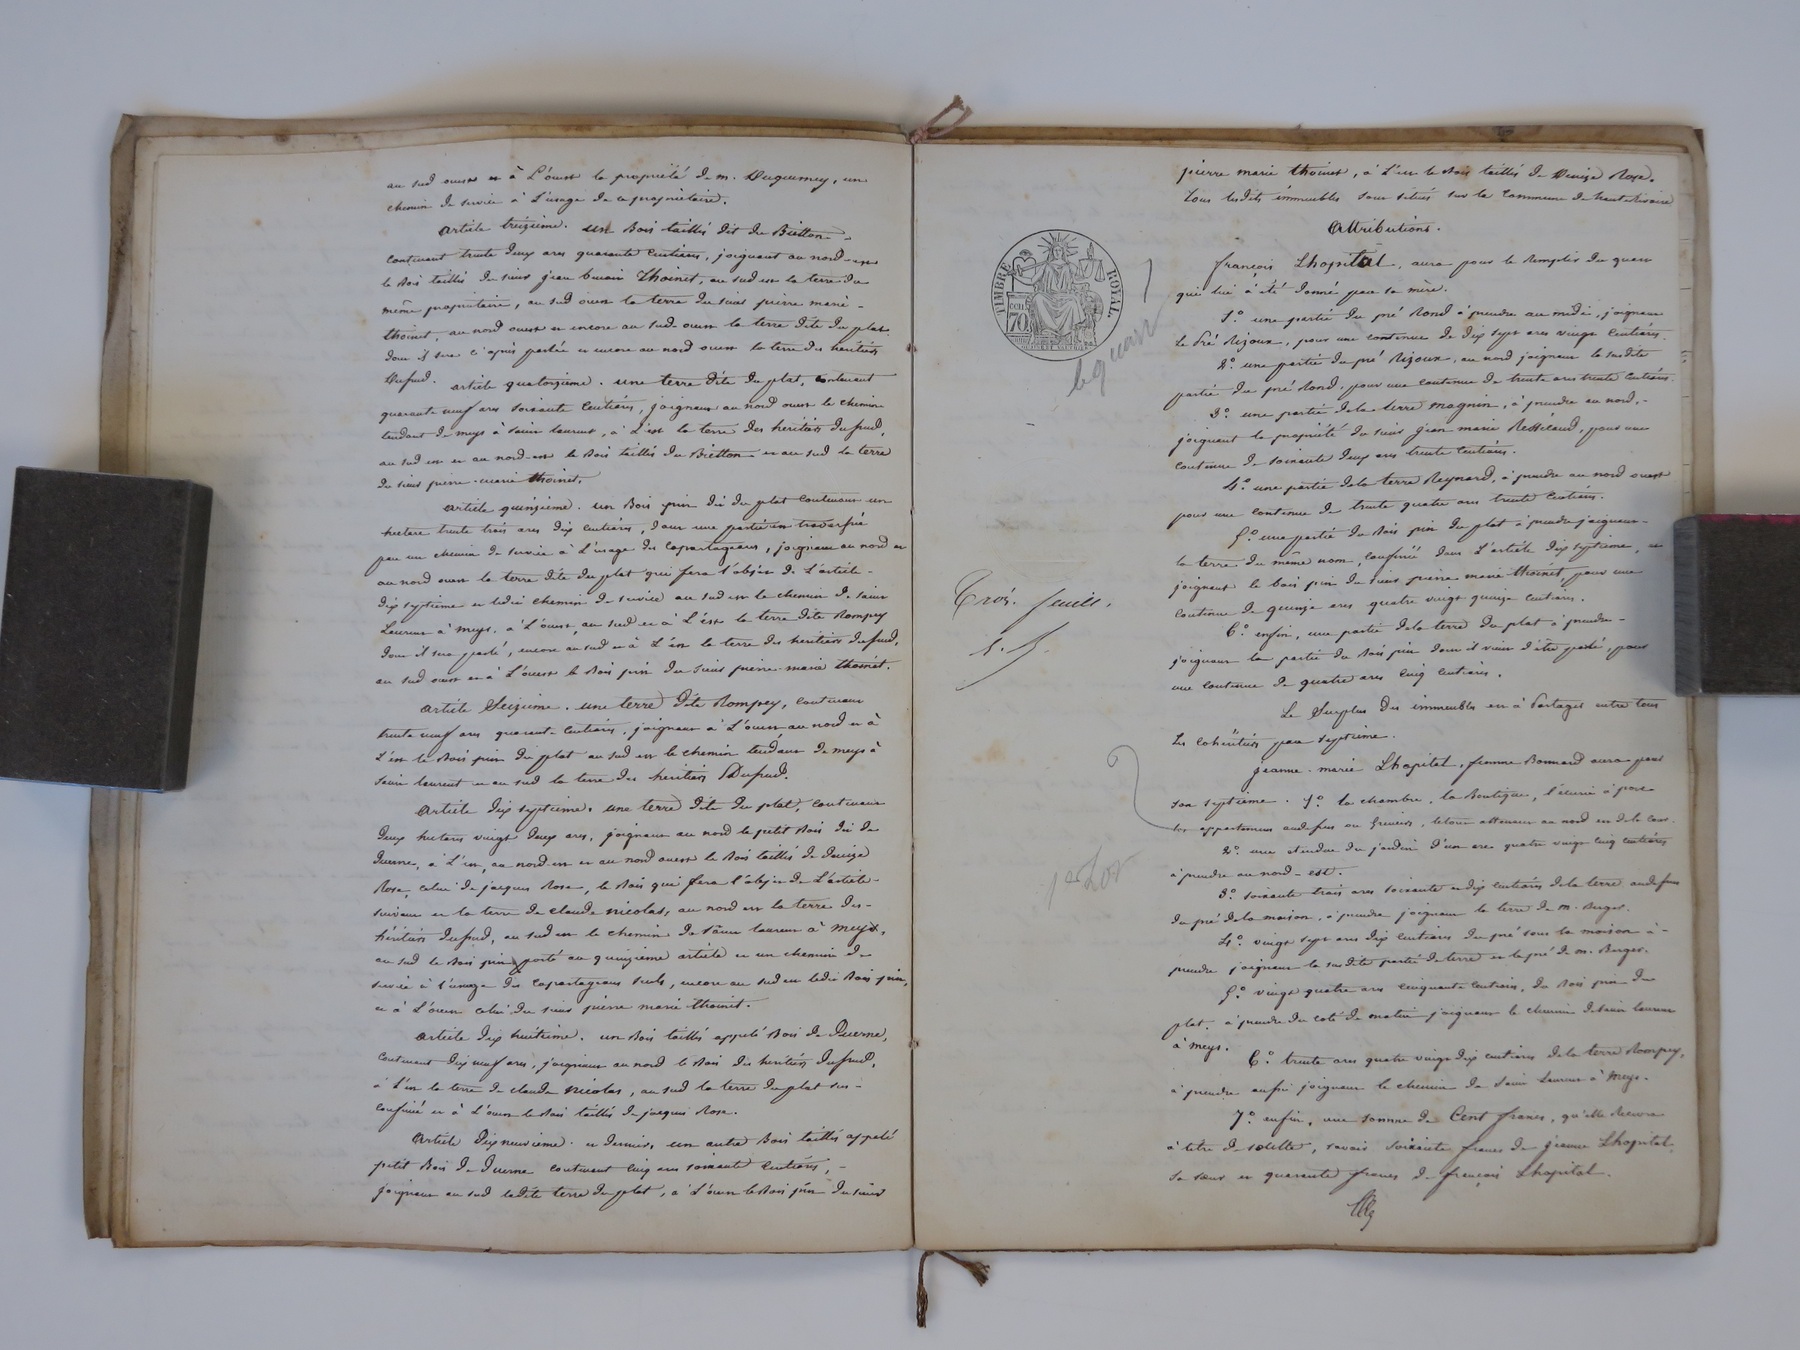 au sud ouest et à L'ouest la propriété de m. Duguemey, un
chemin de service à L'usage de ce propriétaire.
Article treizième. un Bois taillis dit du Bietton,
contenant trente deux ares quarante Centiares, joignant au nord-est
le Bois taillis du sieur jean Thoinet, au sud est la terre du
même propriétaire, au sud ouest la terre du sieur pierre marie
thoinet, au nord ouest et encore au sud-ouest la terre dite du plat
dont il sera ci après parlée et encore au nord ouest la terre des héritiers
Dufud. article quatorzième. une terre dite du plat, contenant
quarante neuf ares soixante Centiares, joignant au nord ouest le chemin
tendant de meys à saint laurent, à L'est la terre des héritiers dufud,
au sud est et au nord-est le Bois taillis du Bietton et au sud la terre
du sieur pierre-marie thoinet.
article quinzième. un Bois pin dit du plat contenant un
hectare trente trois ares dix centiares, dans une partie est traversée
par un chemin de service à L'usage des copartageans, joignant au nord et
au nord ouest la terre dite du plat qui fera l'objet de L'article
dix septième et ledit chemin de service au sud est le chemin de saint
Laurent à meys, à L'ouest, au sud et à L'est la terre dite Rompey
dont il sera parlé, encore au sud et à L'est la terre des héritiers dufud,
au sud ouest et à L'ouest le Bois pin du sieur pierre-marie thoinet.
article Seizième. une terre dite Rompey, contenant
trente neuf ares quarante centiares, joignant à L'ouest au nord et à
L'est le Bois pin du plat au sud est le chemin tendant de meys à
saint laurent et au sud la terre des héritiers Dufud.
Article dix septième. une terre dite du plat, contenant
deux hectares vingt deux ares, joignant au nord le petit Bois dit de
Duerne, à L'est, au nord-est et au nord ouest le Bois taillis de Denize
Rose, celui de jacques Rose, le Bois qui fera l'objet de L'article
suivant et la terre de claude nicolas, au nord est la terre des
héritiers dufud, au sud est le chemin de saint laurent à meys,
au sud le Bois pin porté au quinzième article et un chemin de
service à l'usage des copartageans seuls, encore au sud est ledit Bois pin,
et à L'ouest celui du sieur pierre marie thoinet.
article dix huitième. un Bois taillis appelé Bois de Duerne,
contenant dix neuf ares, joignant au nord le Bois des héritiers dufud,
à L'est la terre de claude nicolas, au sud la terre du plat sus-
confinée et à L'ouest le Bois taillis de jacques Rose.
Article dixneuvième et dernier. un autre Bois taillis appelé
petit Bois de Duerne contenant cinq ares soixante Centiares,
joignant au sud ladite terre du plat, à L'ouest le Bois pin du sieur
pierre marie thoinet, à L'est le Bois taillis de Denize Rose.
Tous lesdits immeubles sont situés sur la Commune de haute Rivoire
Attributions.
TIMBRE ROYAL
70
françois Lhopital, aura pour le Remplir du quart
qui lui a été donné par sa mère.
1.º une partie du pré Rond à prendre au midi, joignant
le Pré Rizoux, pour une contenue de dix sept ares vingt Centiares.
2.º une partie du pré Rizoux, au nord joignant la susdite
partie du pré Rond, pour une contenue de trente ares trente Centiares.
3.º une partie de la terre magnin, à prendre au nord,
joignant la propriété du sieur jean marie Ressicaud, pour une
contenue de soixante deux ares trente Centiares.
4.º une partie de la terre Reynard, à prendre au nord ouest
pour une contenue de trente quatre ares trente Centiares.
5.º une partie du Bois pin du plat à prendre joignant
la terre du même nom, confinée dans L'article dix septième, et
joignant le bois pin du sieur pierre marie thoinet, pour une
contenue de quinze ares quatre vingt quinze centiares.
6.º enfin, une partie de la terre du plat à prendre
joignant la partie du Bois pin dont il vient d'être parlé, pour
une contenue de quatre ares cinq centiares.
Le Surplus des immeubles est à Partager entre tous
les cohéritiers par septième.
jeanne-marie Lhopital, femme Bonnard aura pour
son septième. 1.º la chambre, la Boutique, l'écurie à porc
les appartemens audessus ou greniers, letout attenant au nord est de la cour.
2.º une étendue du jardin d'un are quatre vingt cinq centiares
à prendre au nord-est.
3.º soixante trois ares soixante et dix centiares de la terre audessus
du pré de la maison, à prendre joignant la terre de m. Berger.
4.º vingt sept ares dix Centiares du pré sous la maison à
prendre joignant la susdite partie de terre et le pré de m. Berger.
5.º vingt quatre ares cinquante Centiares, du Bois pin du
plat. à prendre du coté de matin joignant le chemin de saint laurent
à meys.
6.º trente ares quatre vingt dix centiares de la terre Rompey,
à prendre aussi joignant le chemin de saint Laurent à Meys.
7.º enfin, une somme de Cent francs, qu'elle Recevra
à titre de soulte, savoir soixante francs de jeanne Lhopital,
sa sœur et quarante francs de françois Lhopital.
le quart
Trois. feuille.
1er Lot